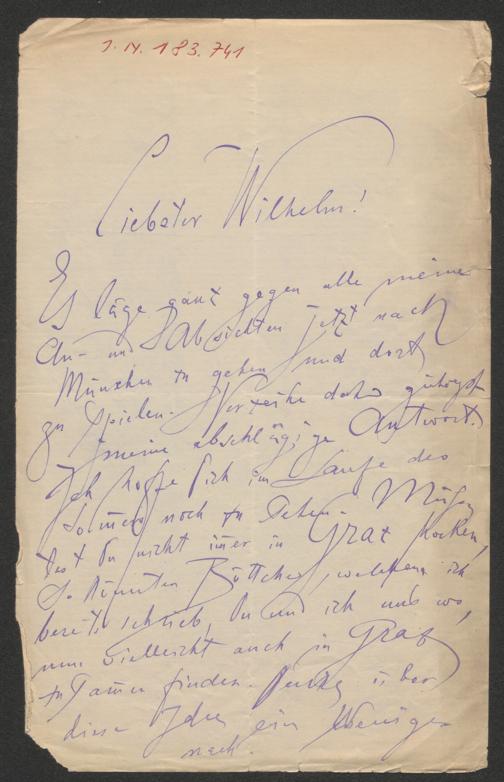 I. N. 183.741
Liebster Wilhelm!
Es läge ganz gegen alle meine
An- und Absichten jetzt nach
München zu gehen und dort
zu spielen. Verzeihe daher gütigst
meine abschlägige Antwort.
Ich hoffe Dich im Laufe des
Sommers noch zu sehen.
Du nicht im̅er in Graz hocken,
So könnten Böttcher, welchem ich
bereits schrieb, Du und ich uns wo,
nun vielleicht auch in Graz
zusam̅en finden. Denke über
diese Idee ein Weniges
nach.